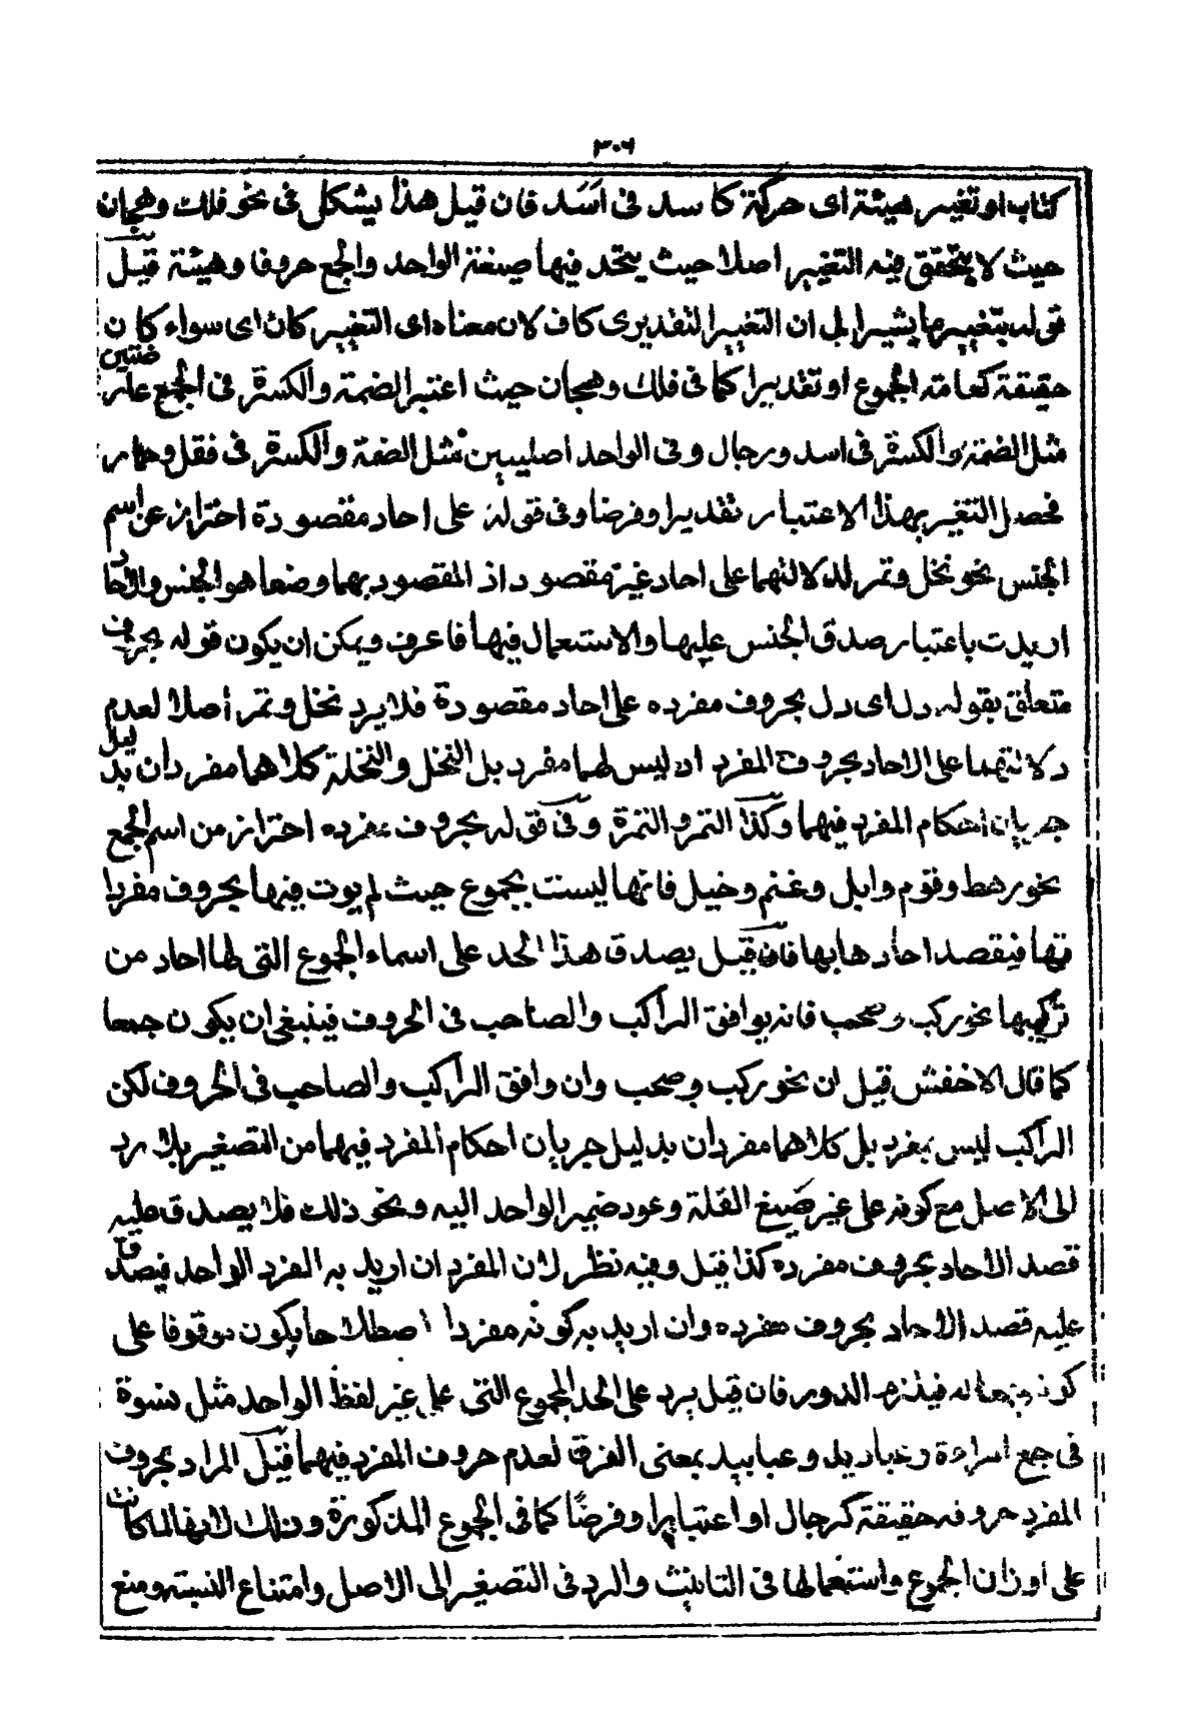 ٣٠٦
كتاب او تغيير هيئة اى حركة كاسد فى اسد فان قيل هذا يشكل فى نحو فلك وهجان
حيث لا يتحقق فيه التغيير اصلا حيث يتحد فيها صيغة الواحد والجمع حروفا وهيئة قيل
قوله بتغيير ما يشير الى ان التغيير التقديرى كاف لان معناه اى التغيير كان اى سواء كان
حقيقة كعامة الجموع او تقديرا كما فى فلك وهجان حيث اعتبر الضمة والكسرة فى الجمع عارضتين
مثل الضمة والكسرة فى اسد ورجال وفى الواحد اصليين مثل الضمة والكسرة فى قفل وحمار
فحصل التغير بهذا الاعتبار تقديرا وفرضا وفى قوله على احاد مقصودة احتراز عن اسم
الجنس نحو نخل وتمر لدلالتهما على احاد غير مقصود اذ المقصود بهما وضعا هو الجنس والآحاد
اريدت باعتبار صدق الجنس عليها والاستعمال فيها فاعرف ويمكن ان يكون قوله بحروف
متعلق بقوله دل اى دل بحروف مفرده على احاد مقصودة فلا يرد نخل وتمر أصلا لعدم
دلالتهما على الاحاد بحروف المفرد اذ ليس لهما مفرد بل النخل والنخلة كلاهما مفردان بدليل
جريان احكام المفرد فيهما وكذا التمر والتمرة وفى قوله بحروف مفرده احتراز من اسم الجمع
نحو رهط وقوم وابل وغنم وخيل فانها ليست بجموع حيث لم يوت فيها بحروف مفردا
تها فيقصد احادها بها فان قيل يصدق هذا الحد على اسماء الجموع التى لها احاد من
تركيبها نحو ركب وصحب فانه يوافق الراكب والصاحب فى الحروف فينبغى ان يكون جمعا
كما قال الاخفش قيل ان نحو ركب وصحب وان وافق الراكب والصاحب فى الحروف لكن
الراكب ليس بمفرد بل كلاهما مفردان بدليل جريان احكام المفرد فيهما من التصغير بلا رد
الى الاصل مع كونه على غير صيغ القلة وعود ضمير الواحد اليه ونحو ذلك فلا يصدق عليه
قصد الآحاد بحروف مفرده كذا قيل وفيه نظر لان المفرد ان اريد به الفرد الواحد فيصدق
عليه قصد الآحاد بحروف مفرده وان اريد به كونه مفردا اصطلاحا يكون موقوفا على
كونه جمعا له فيلزم الدور فان قيل يرد على الحد الجموع التى على غير لفظ الواحد مثل نسوة
فى جمع امراءة وعباديد وعبابيد بمعنى الفرق لعدم حروف المفرد فيهما قيل المراد بحروف
المفرد حروفه حقيقة كرجال او اعتبارا وفرضا كما فى الجموع المذكورة وذلك لانها لما كانت
على اوزان الجموع واستعمالها فى التانيث والرد فى التصغير الى الاصل وامتناع النسبة ومنع